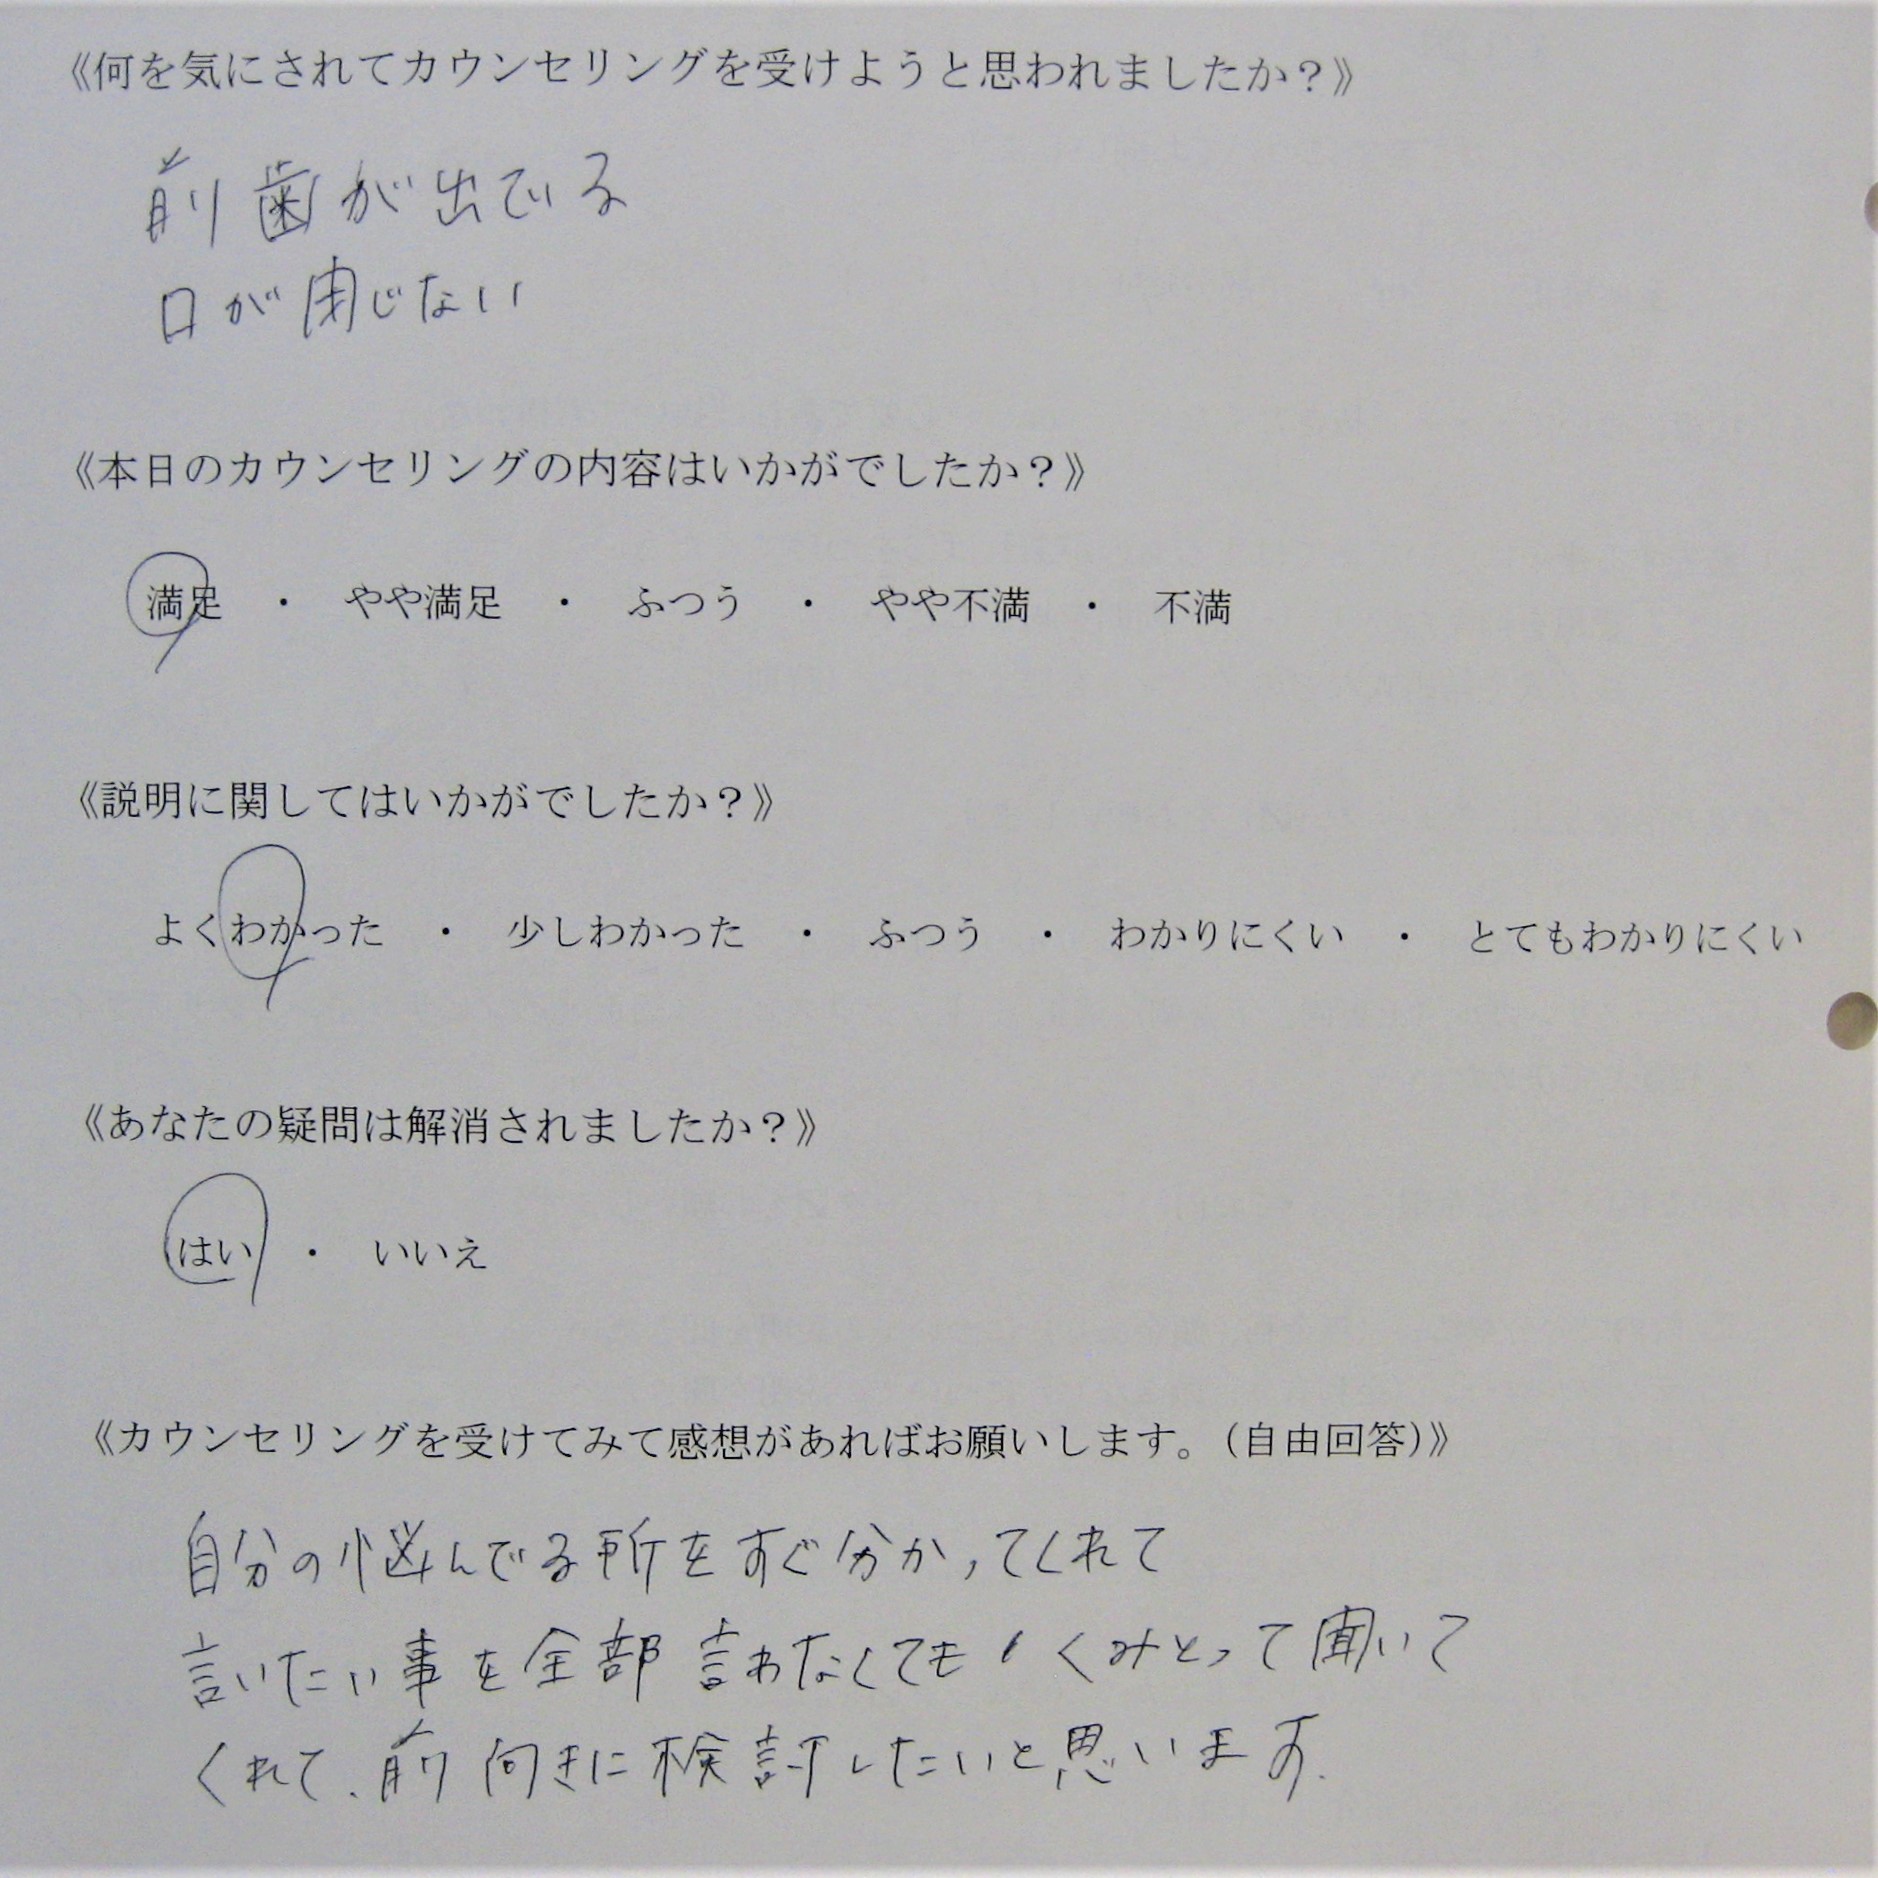 《何を気にされてカウンセリングを受けようと思われましたか？》
前歯が出ている
口が閉じない
《本日のカウンセリングの内容はいかがでしたか？》
満足 ・ やや満足 ・ ふつう ・ やや不満 ・ 不満
《説明に関してはいかがでしたか？》
よくわかった ・ 少しわかった ・ ふつう ・ わかりにくい ・ とてもわかりにくい
《あなたの疑問は解消されましたか？》
はい ・ いいえ
《カウンセリングを受けてみて感想があればお願いします。（自由回答）》
自分の悩んでる所をすぐ分かってくれて
言いたい事を全部言わなくても、くみとって聞いて
くれて、前向きに検討したいと思います。